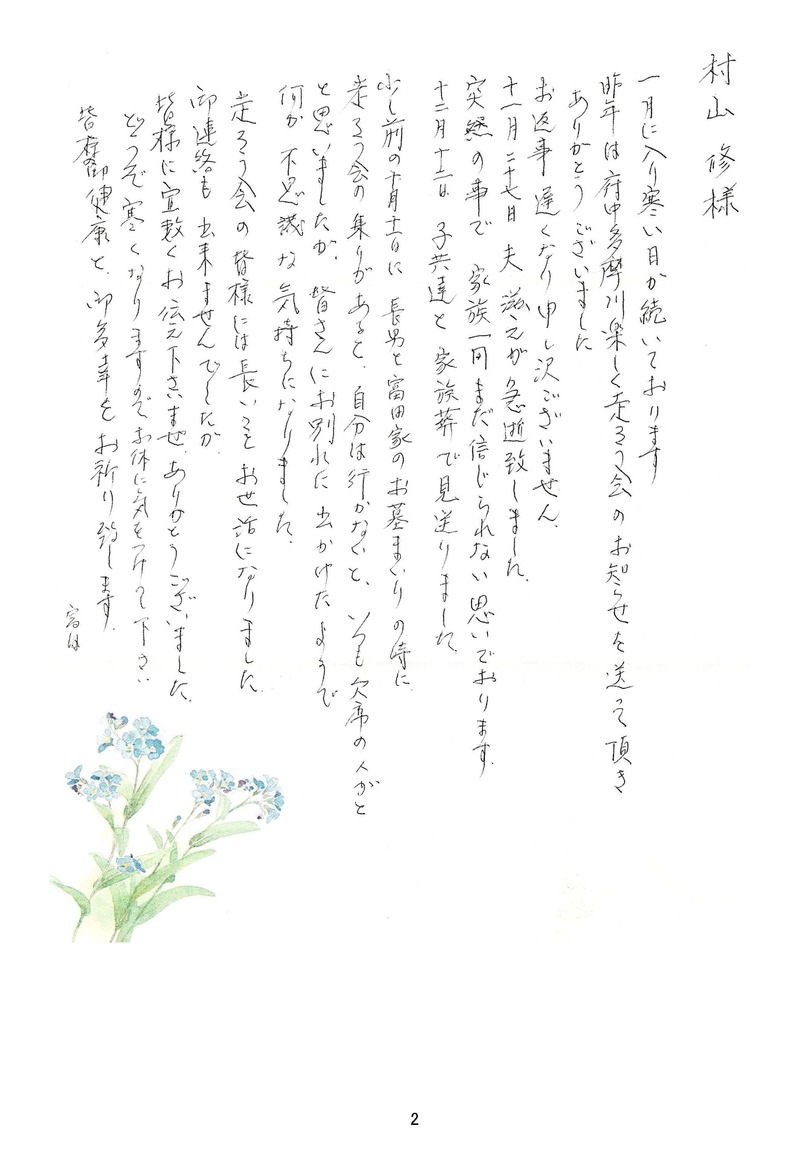 村山 修様
一月に入り寒い日が続いております
昨年は府中多摩川楽しく走ろう会のお知らせを送って頂き
ありがとうございました
お返事遅くなり申し沢ございません。
十一月二十七日 夫 滋が急逝致しました。
突然の事で 家族一同まだ信じられない思いでおります。
十二月十二日 子共達と家族葬で見送りました。
少し前の十月十一日に 長男と富田家のお墓まいりの時に
走ろう会の集りがあると、自分は行かないと、いつも欠席の人がと
と思いましたが、皆さんにお別れに出かけたようで
何か不思議な気持ちになりました。
走ろう会の皆様には長いことお世話になりました。
御連絡も出来ませんでしたが、
皆様に宜敷くお伝え下さいませ。ありがとうございました。
どうぞ寒くなりますのでお体に気をつけて下さい
皆様御健康と、御多幸をお祈り致します。
2